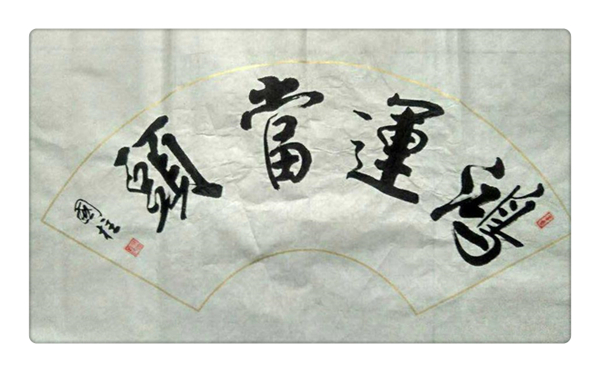 鴻運當頭
國柱